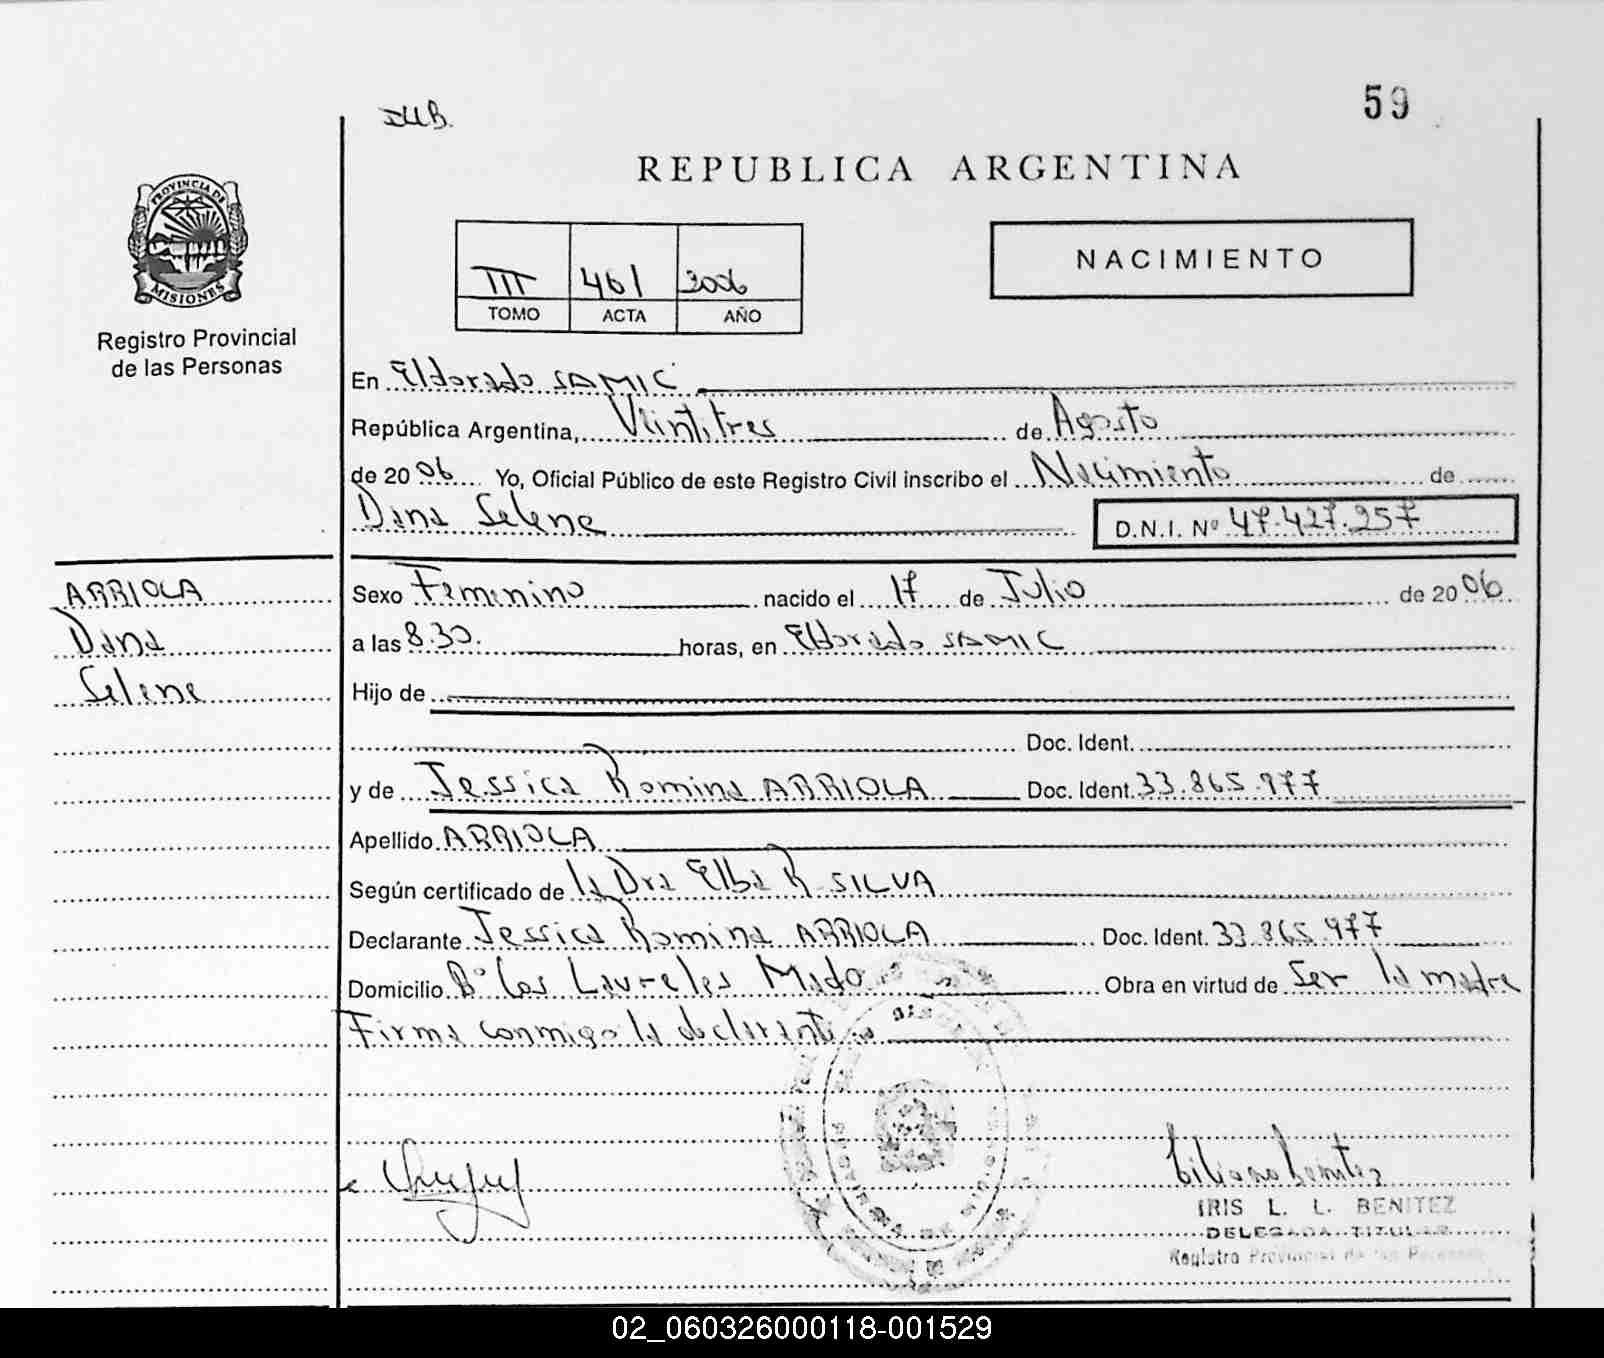 59
I.U.B.
REPUBLICA ARGENTINA
PROVINCIA DE
MISIONES
Registro Provincial
de las Personas
III 461 2006
TOMO ACTA AÑO
NACIMIENTO
En Eldorado SAMIC
República Argentina, Veintitres de Agosto
de 2006 Yo, Oficial Público de este Registro Civil inscribo el Nacimiento de
Dana Selene D.N.I. Nº 47.427.257
ARRIOLA
Dana
Selene
Sexo Femenino nacido el 17 de Julio de 2006
a las 8.30. horas, en Eldorado SAMIC
Hijo de
Doc. Ident.
y de Jessica Romina ARRIOLA Doc. Ident. 33.865.977
Apellido ARRIOLA
Según certificado de la Dra Elba R SILVA
Declarante Jessica Romina ARRIOLA Doc. Ident. 33.865.977
Domicilio Bº Los Laureles Mado Obra en virtud de Ser la madre
Firma conmigo la declarante
Liliana Benitez
IRIS L. L. BENITEZ
DELEGADA TITULAR
Registro Provincial de las Personas
02_060326000118-001529